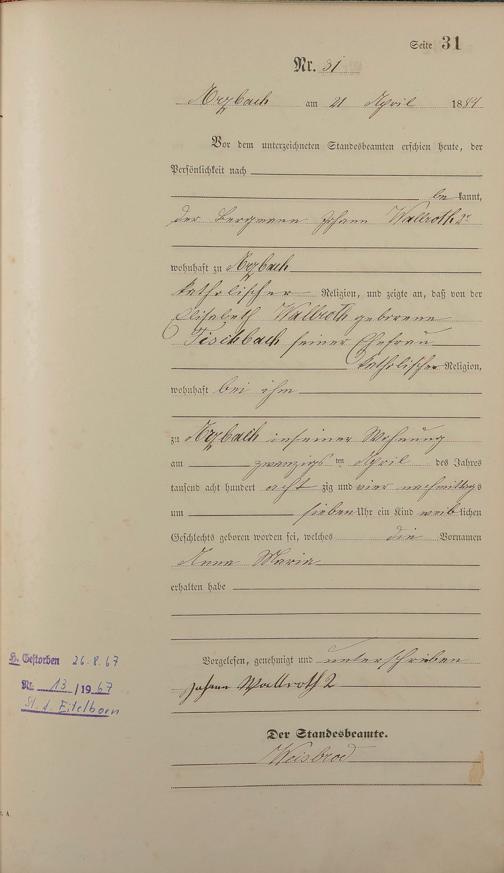 Seite 31
Nr. 31
Arzbach am 21 April 1884
Vor dem unterzeichneten Standesbeamten erschien heute, der
Persönlichkeit nach
bekannt,
der Bergmann Johann Wallroth 2r
wohnhaft zu Arzbach
katholischer Religion, und zeigte an, daß von der
Elisabeth Wallroth geborene
Fischbach seiner Ehefrau
katholischer Religion,
wohnhaft bei ihm
zu Arzbach in seiner Wohnung
am zwanzigsten April des Jahres
tausend acht hundert achtzig und vier nachmittags
um sieben Uhr ein Kind weiblichen
Geschlechts geboren worden sei, welches die Vornamen
Anna Maria
erhalten habe
Vorgelesen, genehmigt und unterschrieben
Johann Wallroth 2
Der Standesbeamte.
Weisbrod
Gestorben 26.8.67
Nr. 13 / 1967
St. A. Eitelborn